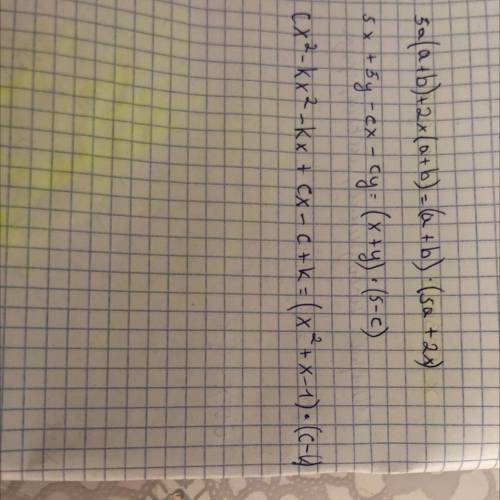 5a(a+b)+2x(a+b)=(a+b)·(5a+2x)
5x+5y-cx-cy=(x+y)·(5-c)
cx²-kx²-kx+cx-c+k=(x²+x-1)·(c-k)